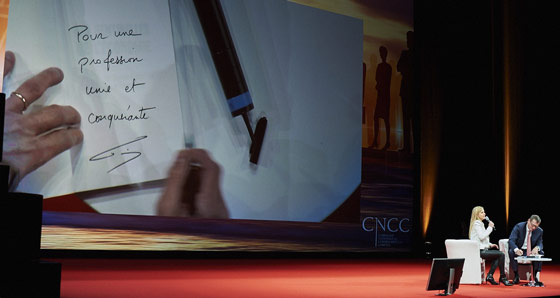 Pour une
profession
unie et
conquérante
CNCC